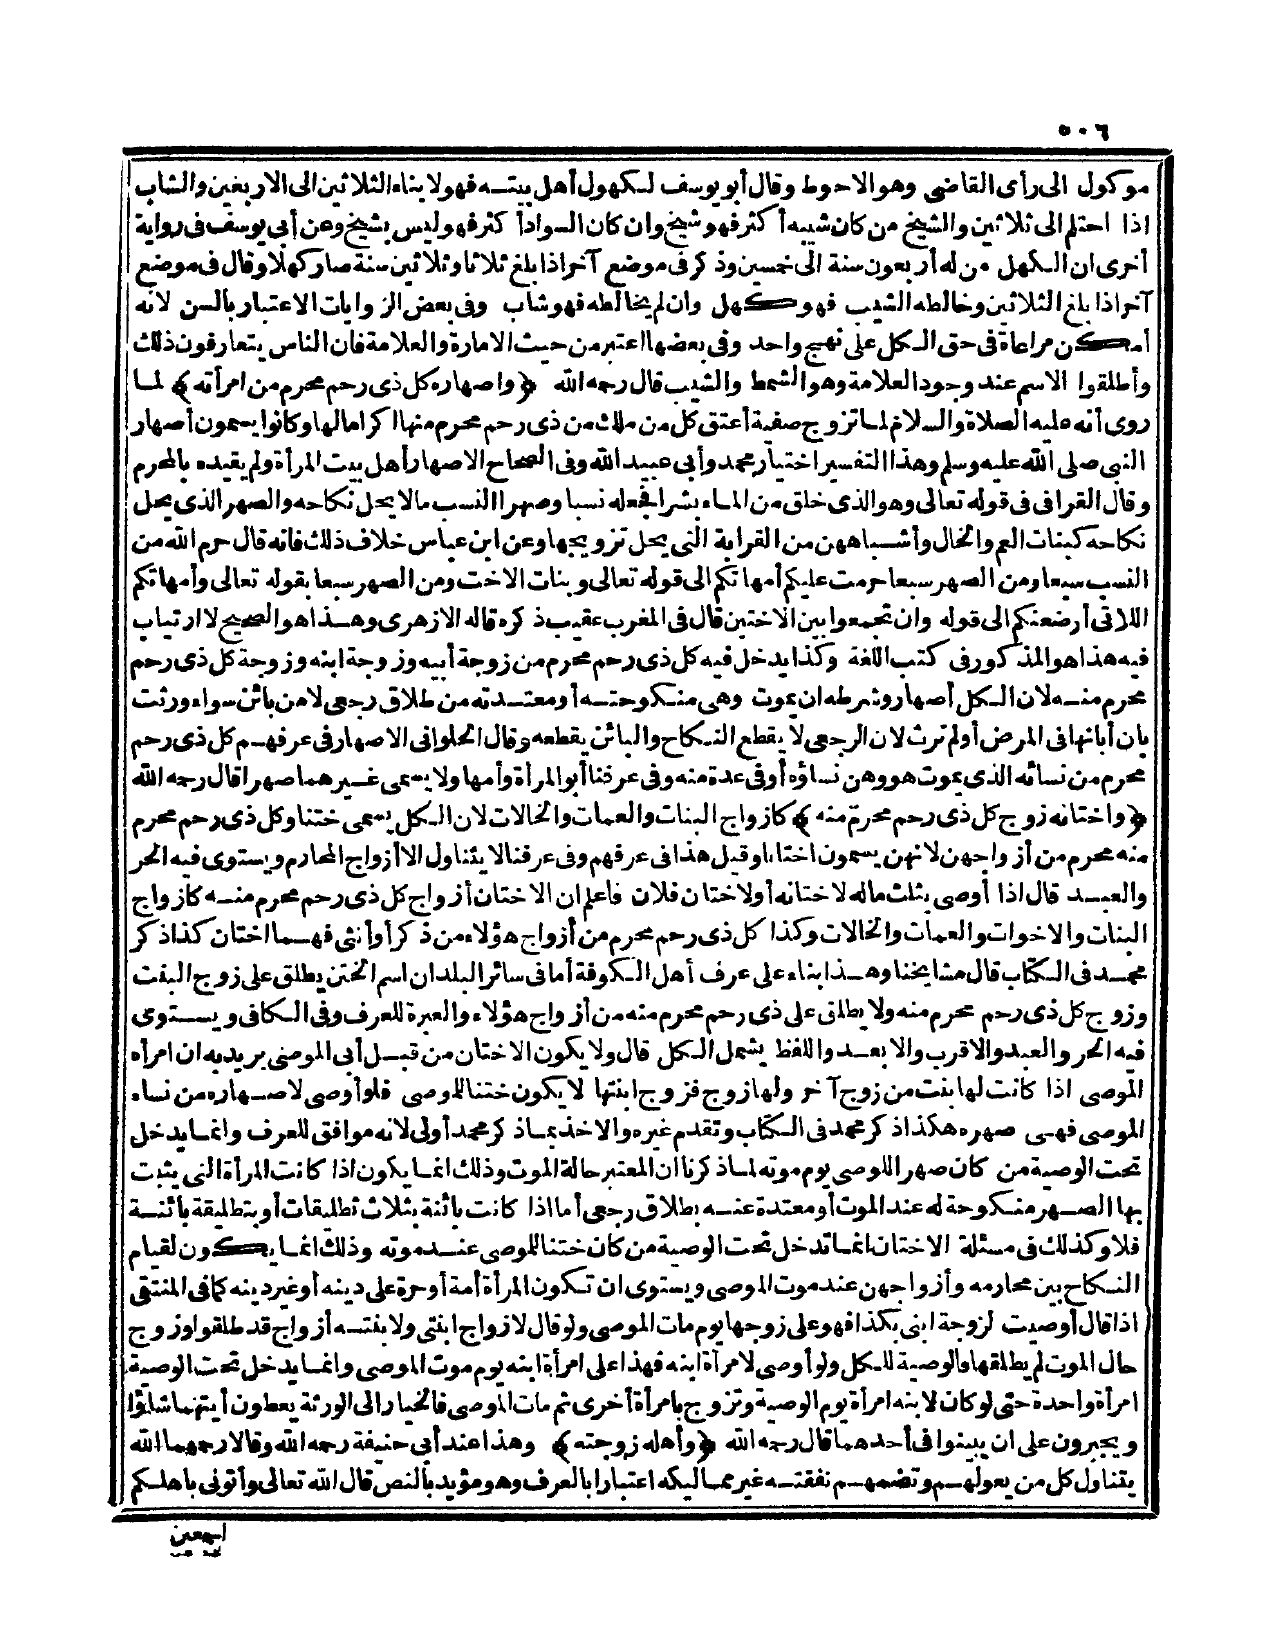 ٥٠٦
موكول الى رأى القاضى وهو الاحوط وقال أبو يوسف لكهول أهل بيته فهو لابناء الثلاثين الى الاربعين والشاب
اذا احتلم الى ثلاثين والشيخ من كان شيبه أكثر فهو شيخ وان كان السواد أكثر فهو ليس بشيخ وعن أبى يوسف فى رواية
أخرى ان الكهل من له أربعون سنة الى خمسين وذكر فى موضع آخر اذا بلغ ثلاثا وثلاثين سنة صار كهلا وقال فى موضع
آخر اذا بلغ الثلاثين وخالطه الشيب فهو كهل وان لم يخالطه فهو شاب وفى بعض الروايات الاعتبار بالسن لانه
أمكن مراعاة فى حق الكل على نهج واحد وفى بعضها اعتبر من حيث الامارة والعلامة فان الناس يتعارفون ذلك
وأطلقوا الاسم عند وجود العلامة وهو الشمط والشيب قال رحمه الله ﴿واصهاره كل ذى رحم محرم من امرأته﴾ لما
روى أنه عليه الصلاة والسلام لما تزوج صفية أعتق كل من ملك من ذى رحم محرم منها اكراما لها وكانوا يسمون أصهار
النبى صلى الله عليه وسلم وهذا التفسير اختيار محمد وأبى عبيد الله وفى الصحاح الاصهار أهل بيت المرأة ولم يقيده بالمحرم
وقال القرافى فى قوله تعالى وهو الذى خلق من الماء بشرا فجعله نسبا وصهرا النسب مالا يحل نكاحه والصهر الذى يحل
نكاحه كبنات العم والخال وأشباههن من القرابة التى يحل تزويجها وعن ابن عباس خلاف ذلك فانه قال حرم الله من
النسب سبعا ومن الصهر سبعا حرمت عليكم أمهاتكم الى قوله تعالى وبنات الاخت ومن الصهر سبعا بقوله تعالى وأمهاتكم
اللاتى أرضعنكم الى قوله وان تجمعوا بين الاختين قال فى المغرب عقيب ذكره قاله الازهرى وهذا هو الصحيح لا ارتياب
فيه هذا هو المذكور فى كتب اللغة وكذا يدخل فيه كل ذى رحم محرم من زوجة أبيه وزوجة ابنه وزوجة كل ذى رحم
محرم منه لان الكل أصهار وشرطه ان يموت وهى منكوحته أو معتدته من طلاق رجعى لا من بائن سواء ورثت
بان أبانها فى المرض أو لم ترث لان الرجعى لا يقطع النكاح والبائن يقطعه وقال الحلوانى الاصهار فى عرفهم كل ذى رحم
محرم من نسائه الذى يموت هو وهن نساؤه أو فى عدة منه وفى عرفنا أبو المرأة وأمها ولا يسمى غيرهما صهرا قال رحمه الله
﴿واختانه زوج كل ذى رحم محرم منه﴾ كازواج البنات والعمات والخالات لان الكل يسمى ختنا وكل ذى رحم محرم
منه محرم من أزواجهن لانهن يسمون اختانا وقيل هذا فى عرفهم وفى عرفنا لا يتناول الا أزواج المحارم ويستوى فيه الحر
والعبد قال اذا أوصى بثلث ماله لاختانه أو لاختان فلان فاعلم ان الاختان أزواج كل ذى رحم محرم منه كازواج
البنات والاخوات والعمات والخالات وكذا كل ذى رحم محرم من أزواج هؤلاء من ذكر أو أنثى فهما اختان كذا ذكر
محمد فى الكتاب قال مشايخنا وهذا بناء على عرف أهل الكوفة أما فى سائر البلدان اسم الختن يطلق على زوج البنت
وزوج كل ذى رحم محرم منه ولا يطلق على ذى رحم محرم منه من أزواج هؤلاء والعبرة للعرف وفى الكافى ويستوى
فيه الحر والعبد والاقرب والابعد واللفظ يشمل الكل قال ولا يكون الاختان من قبل أبى الموصى يريد به ان امرأة
الموصى اذا كانت لها بنت من زوج آخر ولها زوج فزوج ابنتها لا يكون ختنا للموصى فلو أوصى لاصهاره من نساء
الموصى فهى صهره هكذا ذكر محمد فى الكتاب وتقدم غيره والاخذ بما ذكر محمد أولى لانه موافق للعرف وانما يدخل
تحت الوصية من كان صهر اللوصى يوم موته لما ذكرنا ان المعتبر حالة الموت وذلك انما يكون اذا كانت المرأة التى يثبت
بها الصهر منكوحة له عند الموت أو معتدة عنه بطلاق رجعى أما اذا كانت بائنة بثلاث تطليقات أو بتطليقة بائنة
فلا وكذلك فى مسئلة الاختان انما تدخل تحت الوصية من كان ختنا للموصى عند موته وذلك انما يكون لقيام
النكاح بين محارمه وأزواجهن عند موت الموصى ويستوى ان تكون المرأة أمة أو حرة على دينه أو غير دينه كما فى المنتقى
اذا قال أوصيت لزوجة ابنى بكذا فهو على زوجها يوم مات الموصى ولو قال لازواج ابنتى ولابنتسه أزواج قد طلقوا وزوج
حال الموت لم يطلقها فالوصية للكل ولو أوصى لامرأة ابنه فهذا على امرأة ابنه يوم موت الموصى وانما يدخل تحت الوصية
امرأة واحدة حتى لو كان لابنه امرأة يوم الوصية وتزوج بامرأة أخرى ثم مات الموصى فالخيار الى الورثة يعطون أيتهما شاؤا
ويجبرون على ان يبينوا فى أحدهما قال رحمه الله ﴿وأهله زوجته﴾ وهذا عند أبى حنيفة رحمه الله وقالا رحمهما الله
يتناول كل من يعولهم وتضمهم نفقته غير مماليكه اعتبارا بالعرف وهو مؤيد بالنص قال الله تعالى وأتونى باهلكم
اجمعين